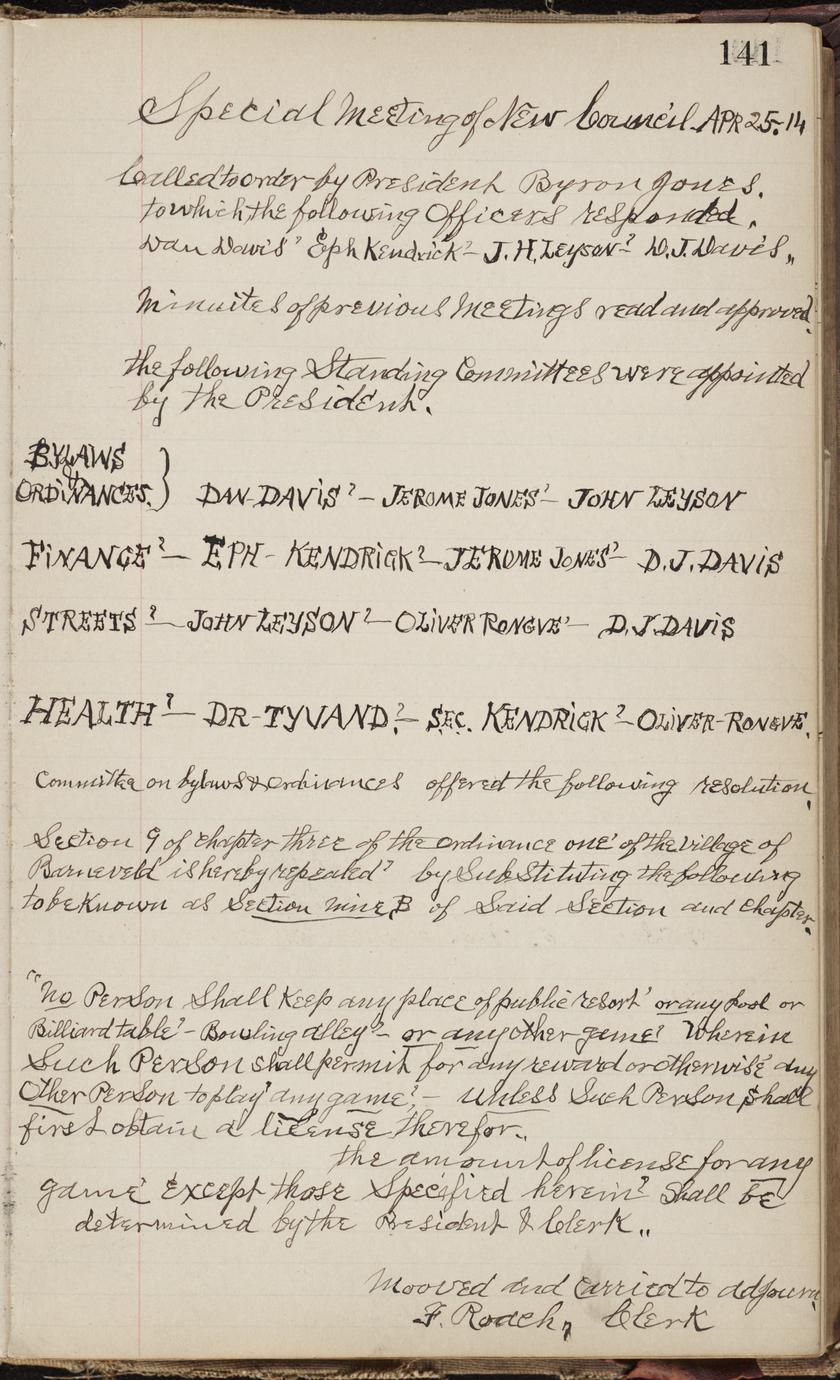 141
Special Meeting of New Council APR 25-14
Called to order by President Byron Jones.
to which the following Officers responded.
Dan Davis' Eph Kendrick?- J.H. Leyson-? D.J. Davis,,
Minuites of previous Meetings read and approved.
the following Standing Committees were appointed
by the President.
BYLAWS
&
ORDINANCES.} DAN DAVIS?- JEROME JONES'- JOHN LEYSON
FINANCE?- EPH- KENDRICK?- JEROME JONES'- D.J. DAVIS
STREETS?- JOHN LEYSON?- OLIVER RONGVE'- D.J. DAVIS
HEALTH?- DR-TYVAND?- SEC. KENDRICK?- OLIVER-RONGVE.
Committee on bylaws & ordinances offered the following resolution.
Section 9 of chapter three of the ordinance one' of the village of
Barneveld is hereby repealed? by Substituting the following
to be Known as Section nine B of Said Section and chapter.
"No Person Shall Keep any place of public resort' or any Pool or
Billiard table?- Bowling alley?- or any other game? Wherein
Such Person shall permit for any reward or otherwise any
Other Person to play' any game?- unless Such Person shall
first obtain a license therefor.,
the amount of license for any
game' Except those Specified herein? Shall be
determined by the President & Clerk,,
Mooved and carried to adjourn.
F. Roach, Clerk